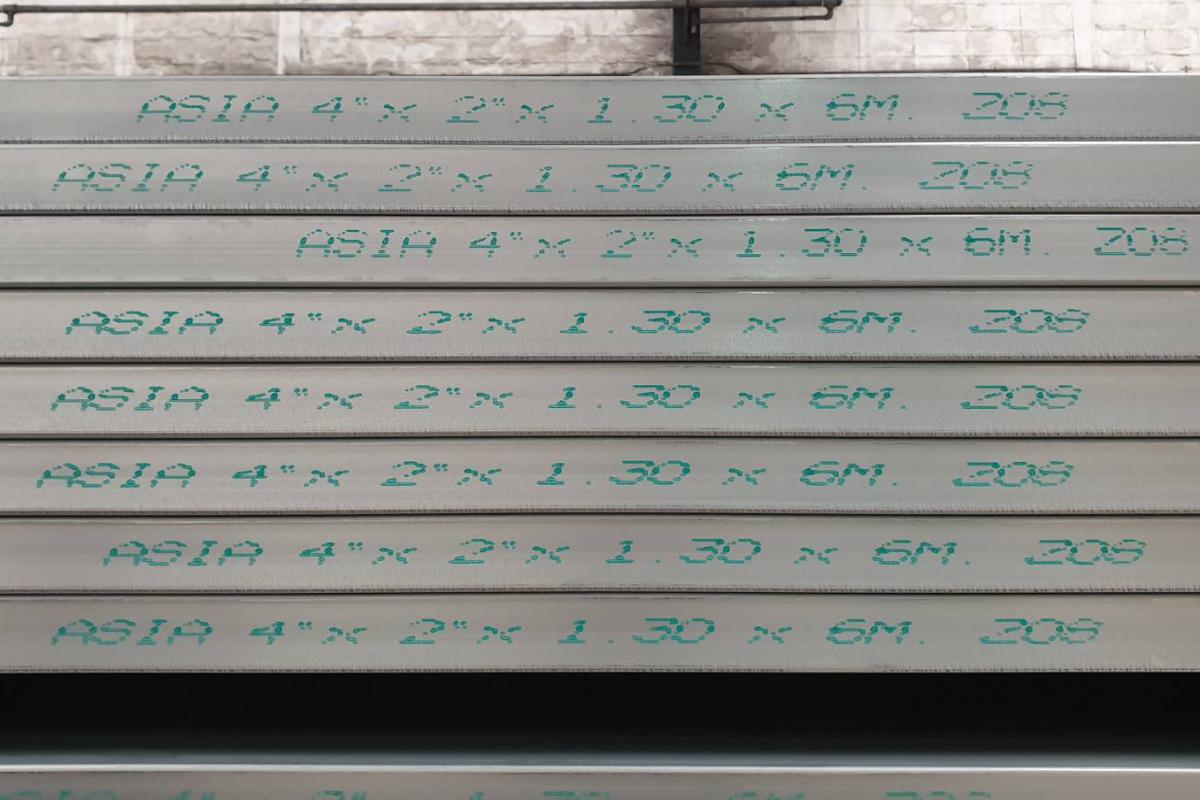 ASIA 4"x 2"x 1.30 x 6M. 208
ASIA 4"x 2"x 1.30 x 6M. 208
ASIA 4"x 2"x 1.30 x 6M. 208
ASIA 4"x 2"x 1.30 x 6M. 208
ASIA 4"x 2"x 1.30 x 6M. 208
ASIA 4"x 2"x 1.30 x 6M. 208
ASIA 4"x 2"x 1.30 x 6M. 208
ASIA 4"x 2"x 1.30 x 6M. 208